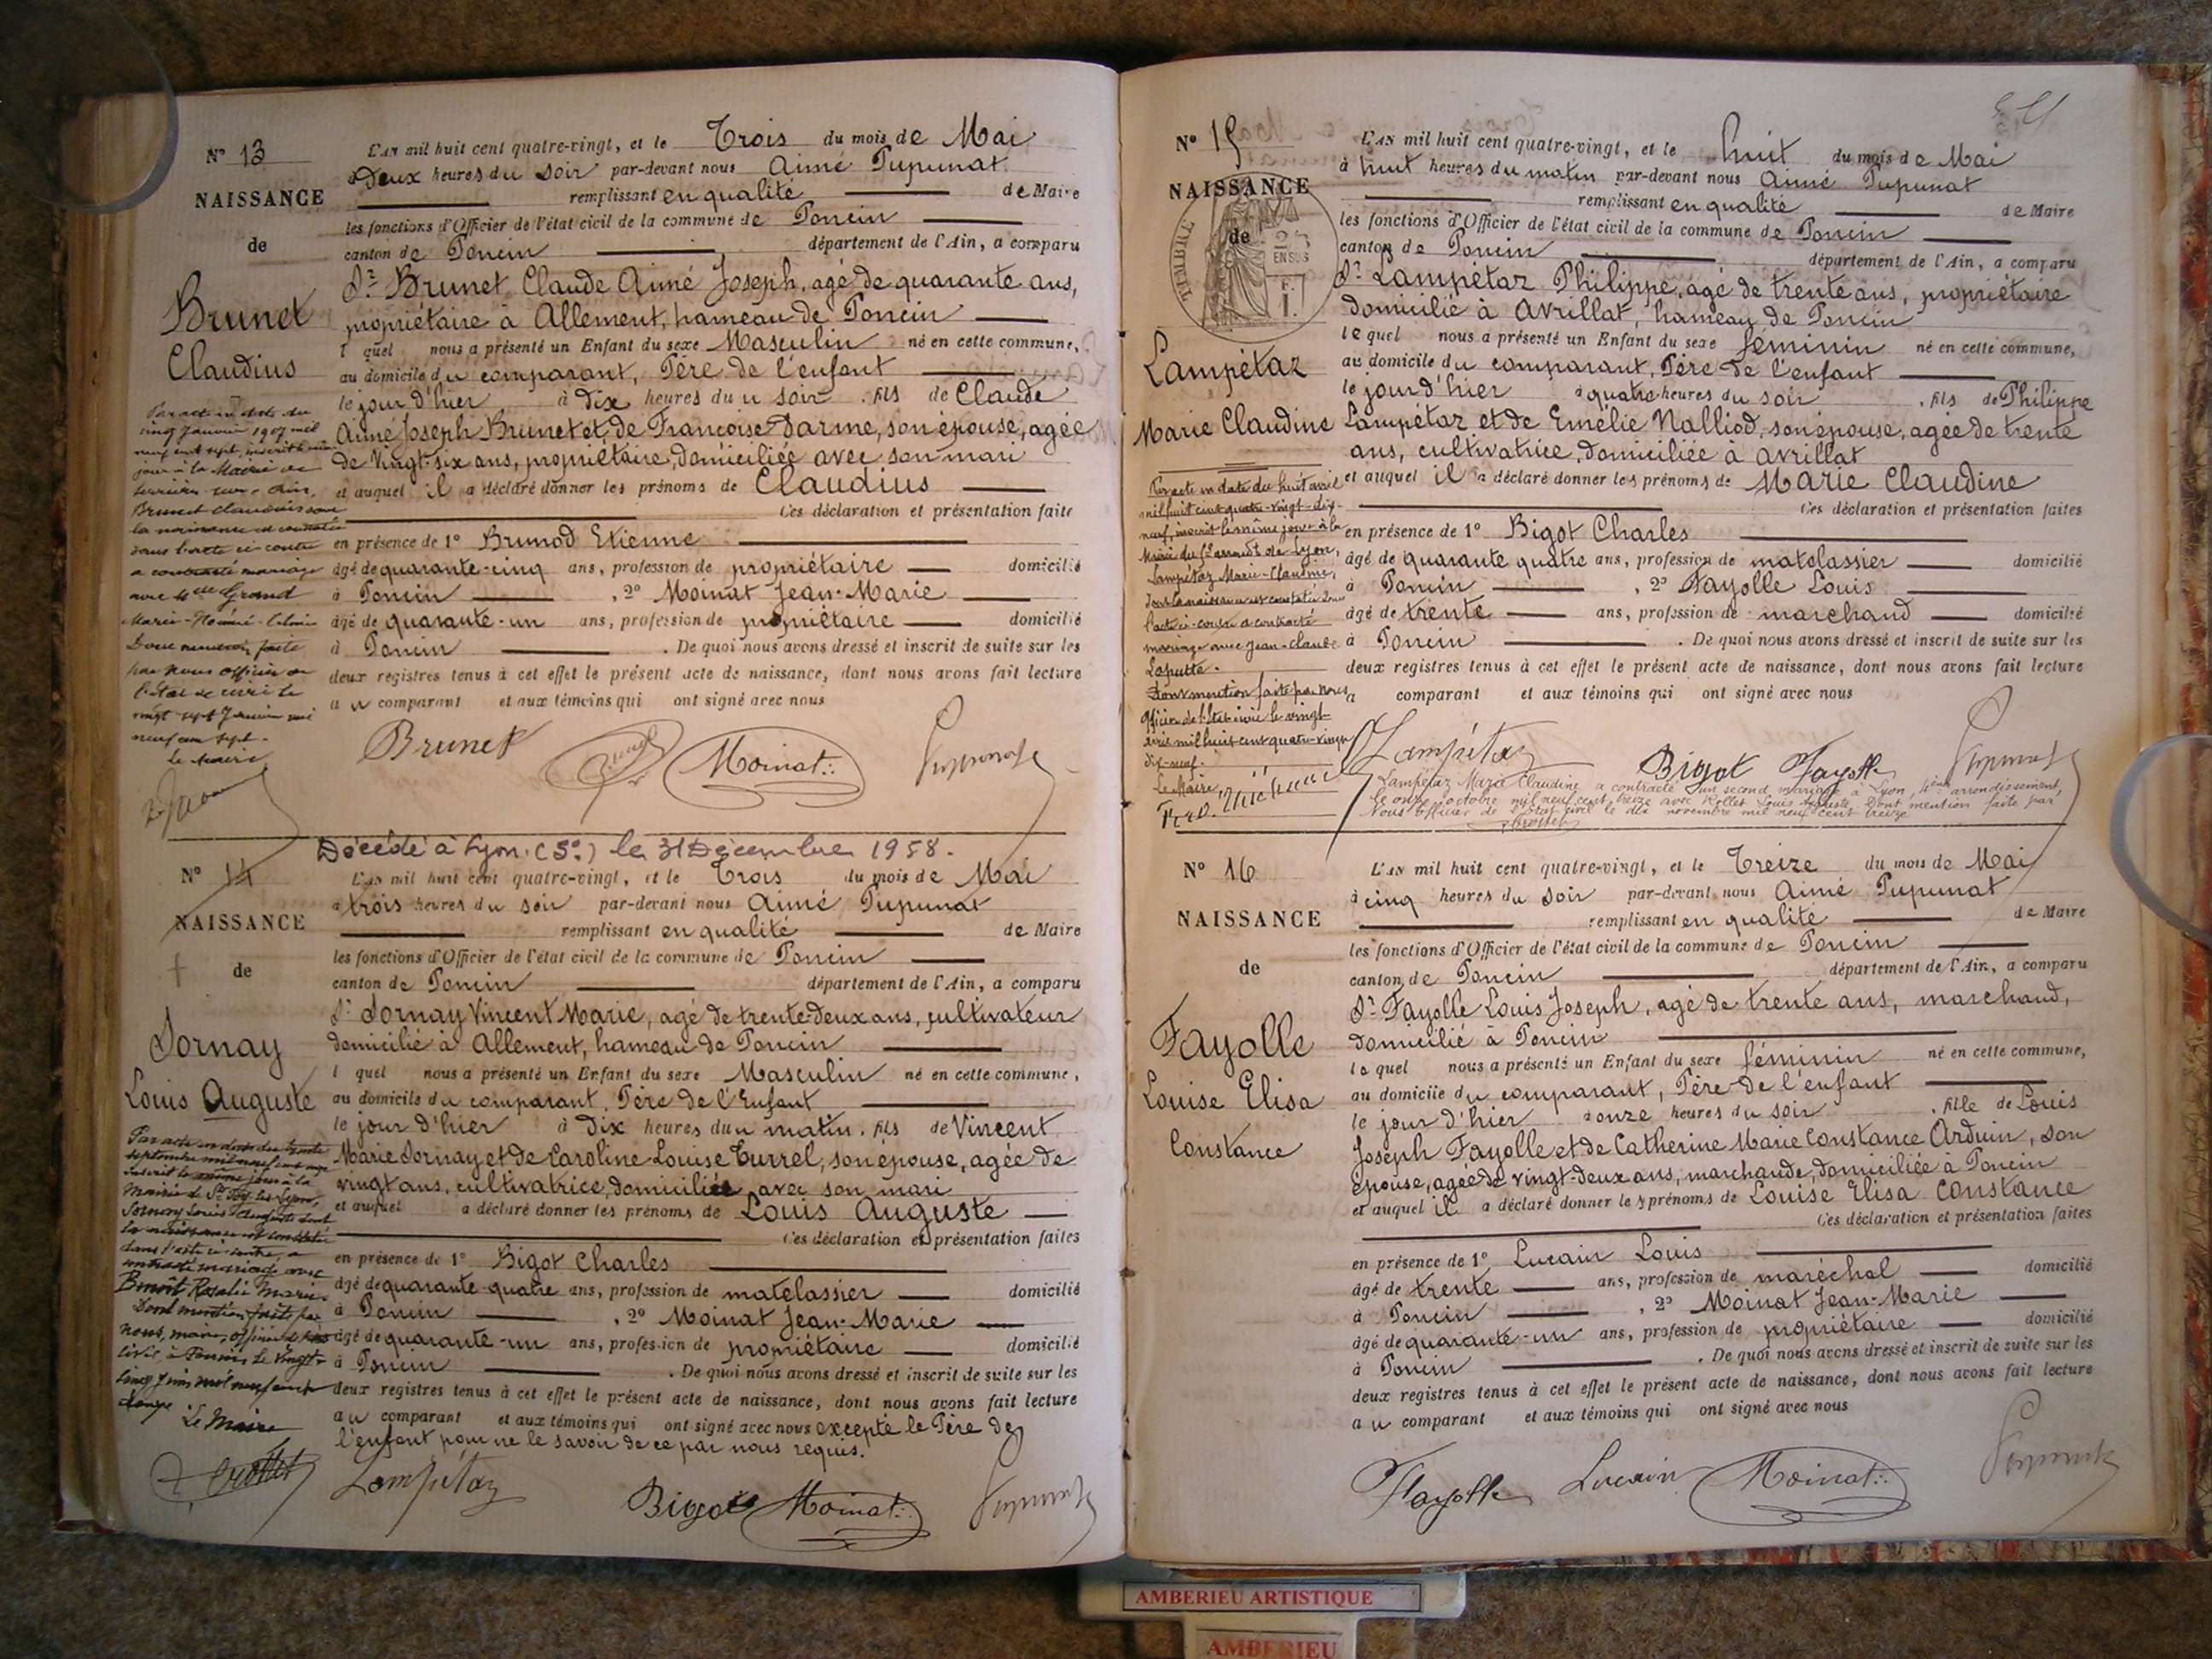 N° 13
NAISSANCE
de
Brunet
Claudius
Par acte en date du
cinq Janvier 1907 mil
neuf cent sept, inscrit le même
jour à la Mairie de
Serrières-sur-Ain,
Brunet Claudius dont
la naissance est constatée
dans l'acte ci-contre
a contracté mariage
avec Mlle Grand
Marie-Noémie
Dont mention faite
par nous officier de
l'état civil le
vingt sept Janvier mil
neuf cent sept.
Le Maire
L'AN mil huit cent quatre-vingt, et le Trois du mois de Mai
à Deux heures du soir par-devant nous Aimé Pupunat
remplissant en qualité de Maire
les fonctions d'Officier de l'état civil de la commune de Poncin
canton de Poncin département de l'Ain, a comparu
Sr Brunet Claude Aimé Joseph, agé de quarante ans,
propriétaire à Allement, hameau de Poncin
l quel nous a présenté un Enfant du sexe Masculin né en cette commune,
au domicile du comparant, Père de l'enfant
le jour d'hier à Dix heures du soir . fils de Claude
Aimé Joseph Brunet et de Françoise Darme, son épouse, agée
de Vingt-six ans, propriétaire, domiciliée avec son mari
et auquel il a déclaré donner les prénoms de Claudius
Ces déclaration et présentation faite
en présence de 1° Brunod Etienne
âgé de quarante-cinq ans, profession de propriétaire domicilié
à Poncin , 2° Moinat Jean-Marie
âgé de quarante-un ans, profession de propriétaire domicilié
à Poncin . De quoi nous avons dressé et inscrit de suite sur les
deux registres tenus à cet effet le présent acte de naissance, dont nous avons fait lecture
au comparant et aux témoins qui ont signé avec nous
Brunet Moinat Pupunat
Décédé à Lyon (5e) le 31 Décembre 1958.
N° 14
NAISSANCE
de
Sornay
Louis Auguste
Par acte en date du trente
septembre mil neuf cent onze
inscrit le même jour à la
Mairie de Ste Foy-les-Lyon,
Sornay Louis Auguste dont
la naissance est constatée
dans l'acte ci-contre, a
contracté mariage avec
Benoit Rosalie Marie.
Dont mention faite par
nous, maire, officier de l'état
civil, à Poncin le vingt-
cinq Juin mil neuf cent
douze
Le Maire
L'AN mil huit cent quatre-vingt, et le Trois du mois de Mai
à trois heures du soir par-devant nous Aimé Pupunat
remplissant en qualité de Maire
les fonctions d'Officier de l'état civil de la commune de Poncin
canton de Poncin département de l'Ain, a comparu
Sr Sornay Vincent Marie, agé de trente-deux ans, cultivateur
domicilié à Allement, hameau de Poncin
l quel nous a présenté un Enfant du sexe Masculin né en cette commune,
au domicile du comparant, Père de l'Enfant
le jour d'hier à Dix heures du matin . fils de Vincent
Marie Sornay et de Caroline Louise Turrel, son épouse, agée de
vingt ans, cultivatrice, domiciliée avec son mari
et auquel a déclaré donner les prénoms de Louis Auguste
Ces déclaration et présentation faites
en présence de 1° Bigot Charles
âgé de quarante-quatre ans, profession de matelassier domicilié
à Poncin , 2° Moinat Jean-Marie
âgé de quarante-un ans, profession de propriétaire domicilié
à Poncin . De quoi nous avons dressé et inscrit de suite sur les
deux registres tenus à cet effet le présent acte de naissance, dont nous avons fait lecture
au comparant et aux témoins qui ont signé avec nous excepté le Père de
l'enfant pour ne le savoir de ce par nous requis.
Lampétaz Bigot Moinat Pupunat
N° 15
NAISSANCE
de
Lampétaz
Marie Claudine
Par acte en date du huit avril
mil huit cent quatre-vingt-dix-
neuf, inscrit le même jour à la
Mairie du arrondt de Lyon,
Lampétaz Marie-Claudine,
dont la naissance est constatée dans
l'acte ci-contre a contracté
mariage avec Jean-Claude
Laputte.
Dont mention faite par nous
Officier de l'état civil le vingt-
avril mil huit cent quatre-vingt
dix-neuf.
Le Maire
TIMBRE
L'AN mil huit cent quatre-vingt, et le huit du mois de Mai
à huit heures du matin par-devant nous Aimé Pupunat
remplissant en qualité de Maire
les fonctions d'Officier de l'état civil de la commune de Poncin
canton de Poncin département de l'Ain, a comparu
Sr Lampétaz Philippe, agé de trente ans, propriétaire
domicilié à Avrillat, hameau de Poncin
lequel nous a présenté un Enfant du sexe féminin né en cette commune,
au domicile du comparant, Père de l'enfant
le jour d'hier à quatre heures du soir . fils de Philippe
Lampétaz et de Emélie Nalliod, son épouse, agée de trente
ans, cultivatrice, domiciliée à Avrillat
et auquel il a déclaré donner les prénoms de Marie Claudine
Ces déclaration et présentation faites
en présence de 1° Bigot Charles
âgé de quarante quatre ans, profession de matelassier domicilié
à Poncin , 2° Fayolle Louis
âgé de trente ans, profession de marchand domicilié
à Poncin . De quoi nous avons dressé et inscrit de suite sur les
deux registres tenus à cet effet le présent acte de naissance, dont nous avons fait lecture
a comparant et aux témoins qui ont signé avec nous
Lampétaz Bigot Fayolle Pupunat
Lampétaz Marie Claudine a contracté un second mariage à Lyon, 4ème arrondissement,
le onze octobre mil neuf cent treize avec Rollet Louis Auguste. Dont mention faite par
Nous Officier de l'état civil le dix novembre mil neuf cent treize
N° 16
NAISSANCE
de
Fayolle
Louise Elisa
Constance
L'AN mil huit cent quatre-vingt, et le Treize du mois de Mai
à cinq heures du soir par-devant nous Aimé Pupunat
remplissant en qualité de Maire
les fonctions d'Officier de l'état civil de la commune de Poncin
canton de Poncin département de l'Ain, a comparu
Sr Fayolle Louis Joseph, agé de trente ans, marchand,
domicilié à Poncin
lequel nous a présenté un Enfant du sexe féminin né en cette commune,
au domicile du comparant, Père de l'enfant
le jour d'hier à onze heures du soir . fille de Louis
Joseph Fayolle et de Catherine Marie Constance Arduin, son
épouse, agée de vingt-deux ans, marchande, domiciliée à Poncin
et auquel il a déclaré donner les prénoms de Louise Elisa Constance
Ces déclaration et présentation faites
en présence de 1° Lucain Louis
âgé de trente ans, profession de maréchal domicilié
à Poncin , 2° Moinat Jean-Marie
âgé de quarante-un ans, profession de propriétaire domicilié
à Poncin . De quoi nous avons dressé et inscrit de suite sur les
deux registres tenus à cet effet le présent acte de naissance, dont nous avons fait lecture
au comparant et aux témoins qui ont signé avec nous
Fayolle Lucain Moinat Pupunat
AMBERIEU ARTISTIQUE
AMBERIEU